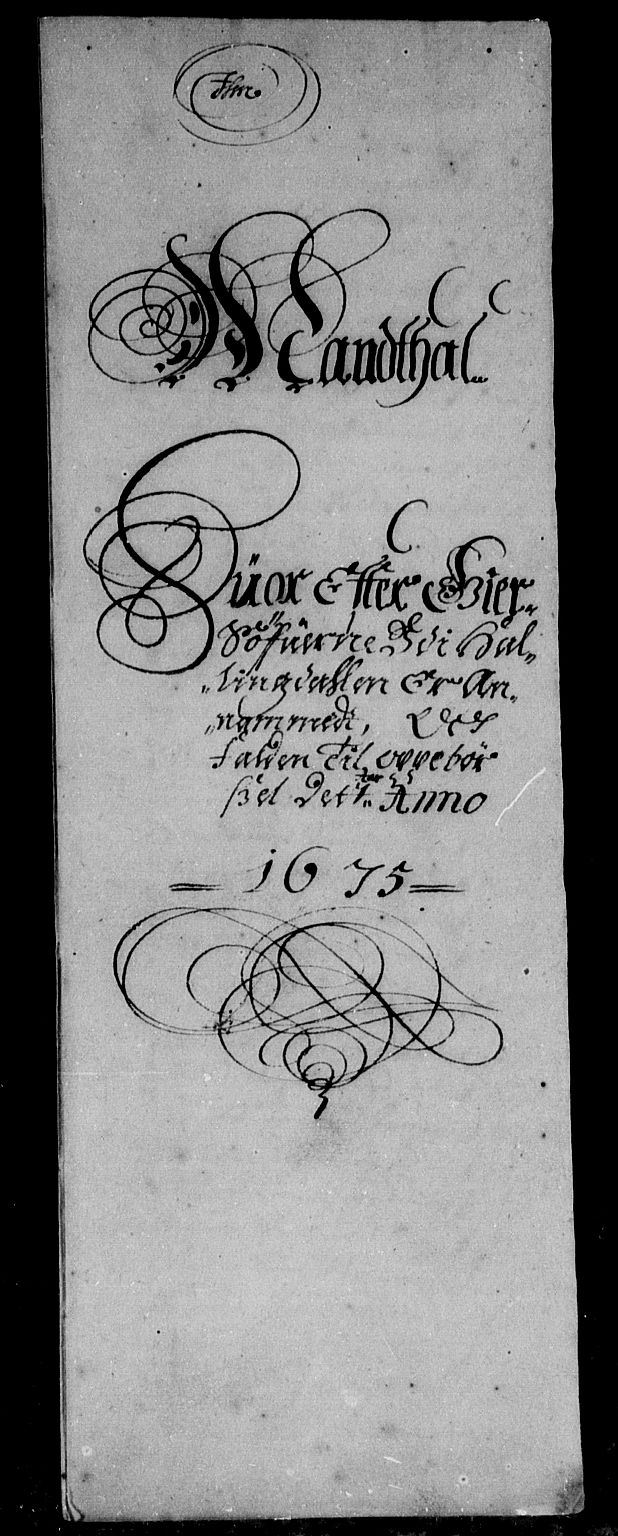 Mandthal
Hüor Efter Gier-
Söfüerne Vdi Hal-
lingdahlen Er An-
nammedt,
falden Til oppebör
sel Dett for Anno
1675